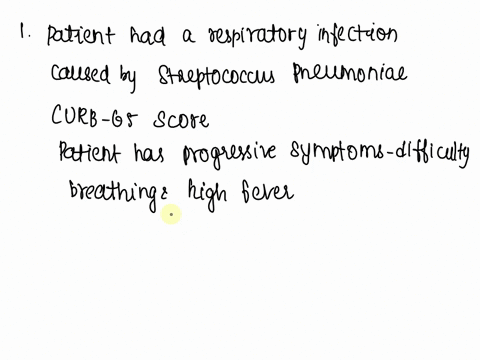 1. Patient had a respiratory infection
caused by Streptococcus Pneumoniae
CURB-65 Score
Patient has progressive symptoms-difficulty
breathing & high fever